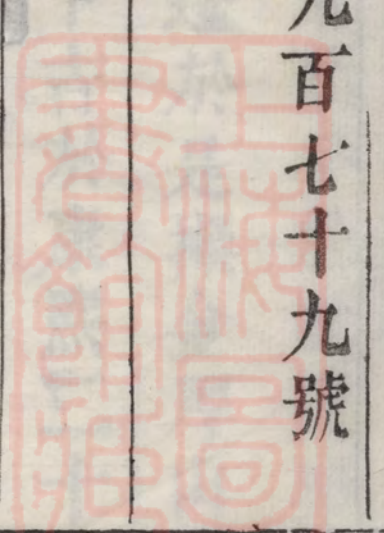 百七十九號
上海圖
書館藏